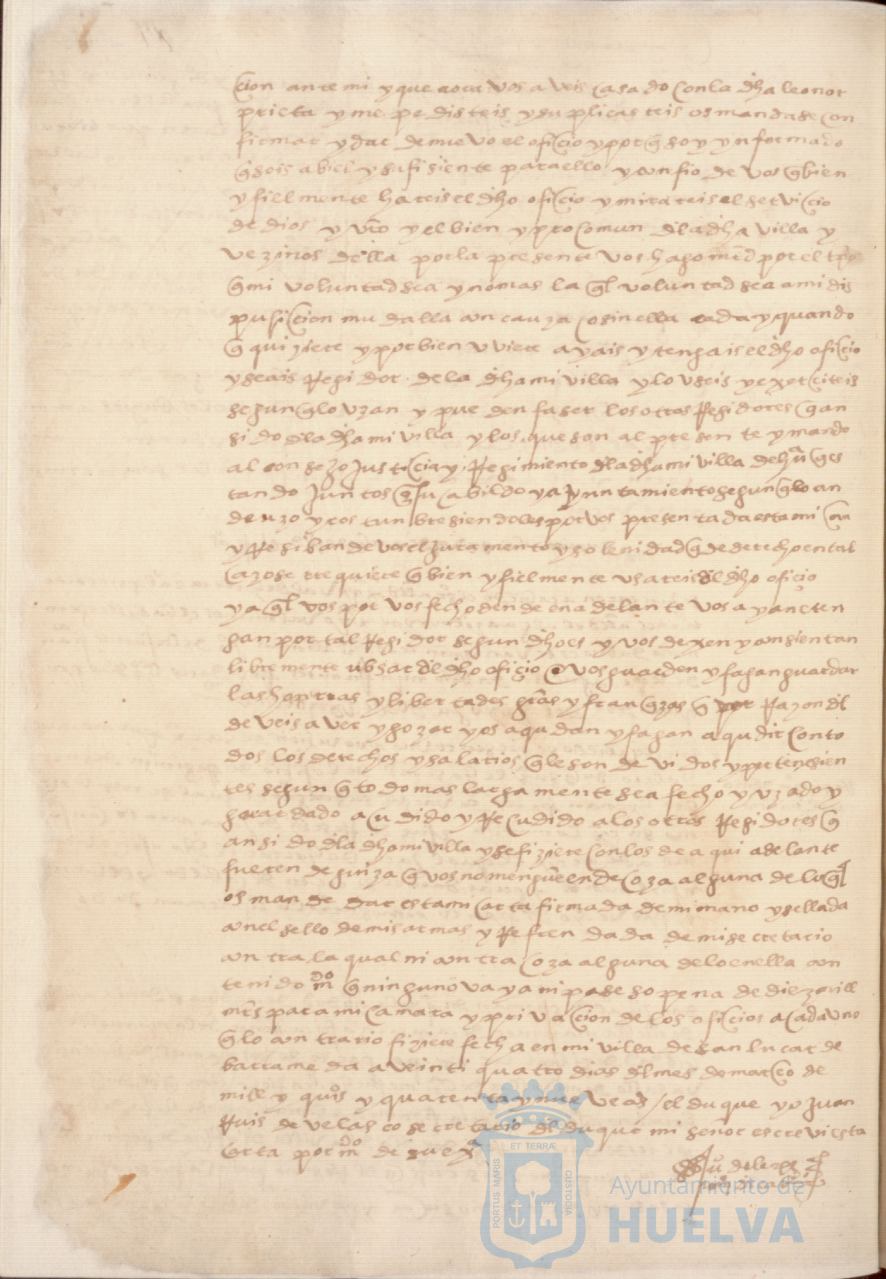 cion ante mi y que aora vos aveis casado con la dha leonor
prieta y me pedisteis y suplicasteis os mandase con
firmar y dar de nuevo el oficio y porq̃ soy ynformado
q̃ sois abiel y sufisiente para ello y confio de vos q̃ bien
y fielmente hareis el dho oficio y mirareis el servicio
de dios y mio y el bien y procomun dla dha villa y
vezinos della por la presente vos hago mrd por el tpo
q̃ mi voluntad sea y no mas la ql voluntad sea a mi dis
pusicion mudalla con cauza o sin ella cada y quando
q̃ quiziere y por bien uviere ayais y tengais el dho oficio
y seais Regidor de la dha mi villa y lo useis y exerciteis
segun q̃ lo uzan y pueden faser los otros Regidores q̃ an
sido dla dha mi villa y los que son al presente y mando
al consezo justicia y Regimiento dla dha mi villa de hua q̃ es
tando juntos en su cabildo y ayuntamiento segun q̃ lo an
de uzo y costunbre siendoles por vos presentada esta mi
y Resiban de vos el juramento y solenidad q̃ de derecho en tal
cazo se rrequiere q̃ bien y fielmente usareis dl dho ofiçio
y a ql vos por vos fecho dende en adelante vos ayan e ten
gan por tal Regidor segun dho es y vos dexen y consientan
libremente ubsar dl dho ofiçio e vos guarden y fagan guardar
las honrras y libertades grãs y franq̃zas q̃ por Razon dl
deveis aver y gozar y os acudan y fagan acudir con to
dos los derechos y salarios q̃ le son devidos y pertenesien
tes segun q̃ todo mas largamente sea fecho y uzado y
guardado acudido y Recudido a los otros Regidores q̃
an sido dla dha mi villa y se fiziere con los de aqui adelante
fueren de guiza q̃ vos no mengue ende coza alguna de lo ql
os mande dar esta mi carta firmada de mi mano y sellada
con el sello de mis armas y Refrendada de mi secretario
contra la qual ni contra coza alguna de lo en ella con
tenido mdo q̃ ninguno vaya ni pase so pena de diez mill
mrs para mi camara y privacion de los oficios a cada uno
q̃ lo contrario fiziere fecha en mi villa de san lucar de
barrameda a veinti quatro dias dl mes de março de
mill y quios y quarenta y nueve as / el duque yo Juan
Ruis de velasco secretario dl duque mi señor escrevi esta
carta por mdo de su exa
PORTUS MARIS
ET TERRÆ
CUSTODIA
Ayuntamiento de
HUELVA